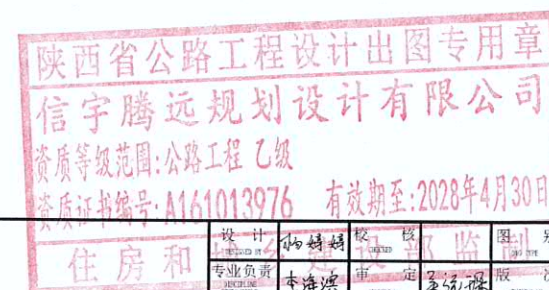 陕西省公路工程设计出图专用章
信宇腾远规划设计有限公司
资质等级范围:公路工程 乙级
资质证书编号:A161013976 有效期至:2028年4月30日
住房和城乡建设部监制
设计 杨婷婷 校核 图别
专业负责 审定 版